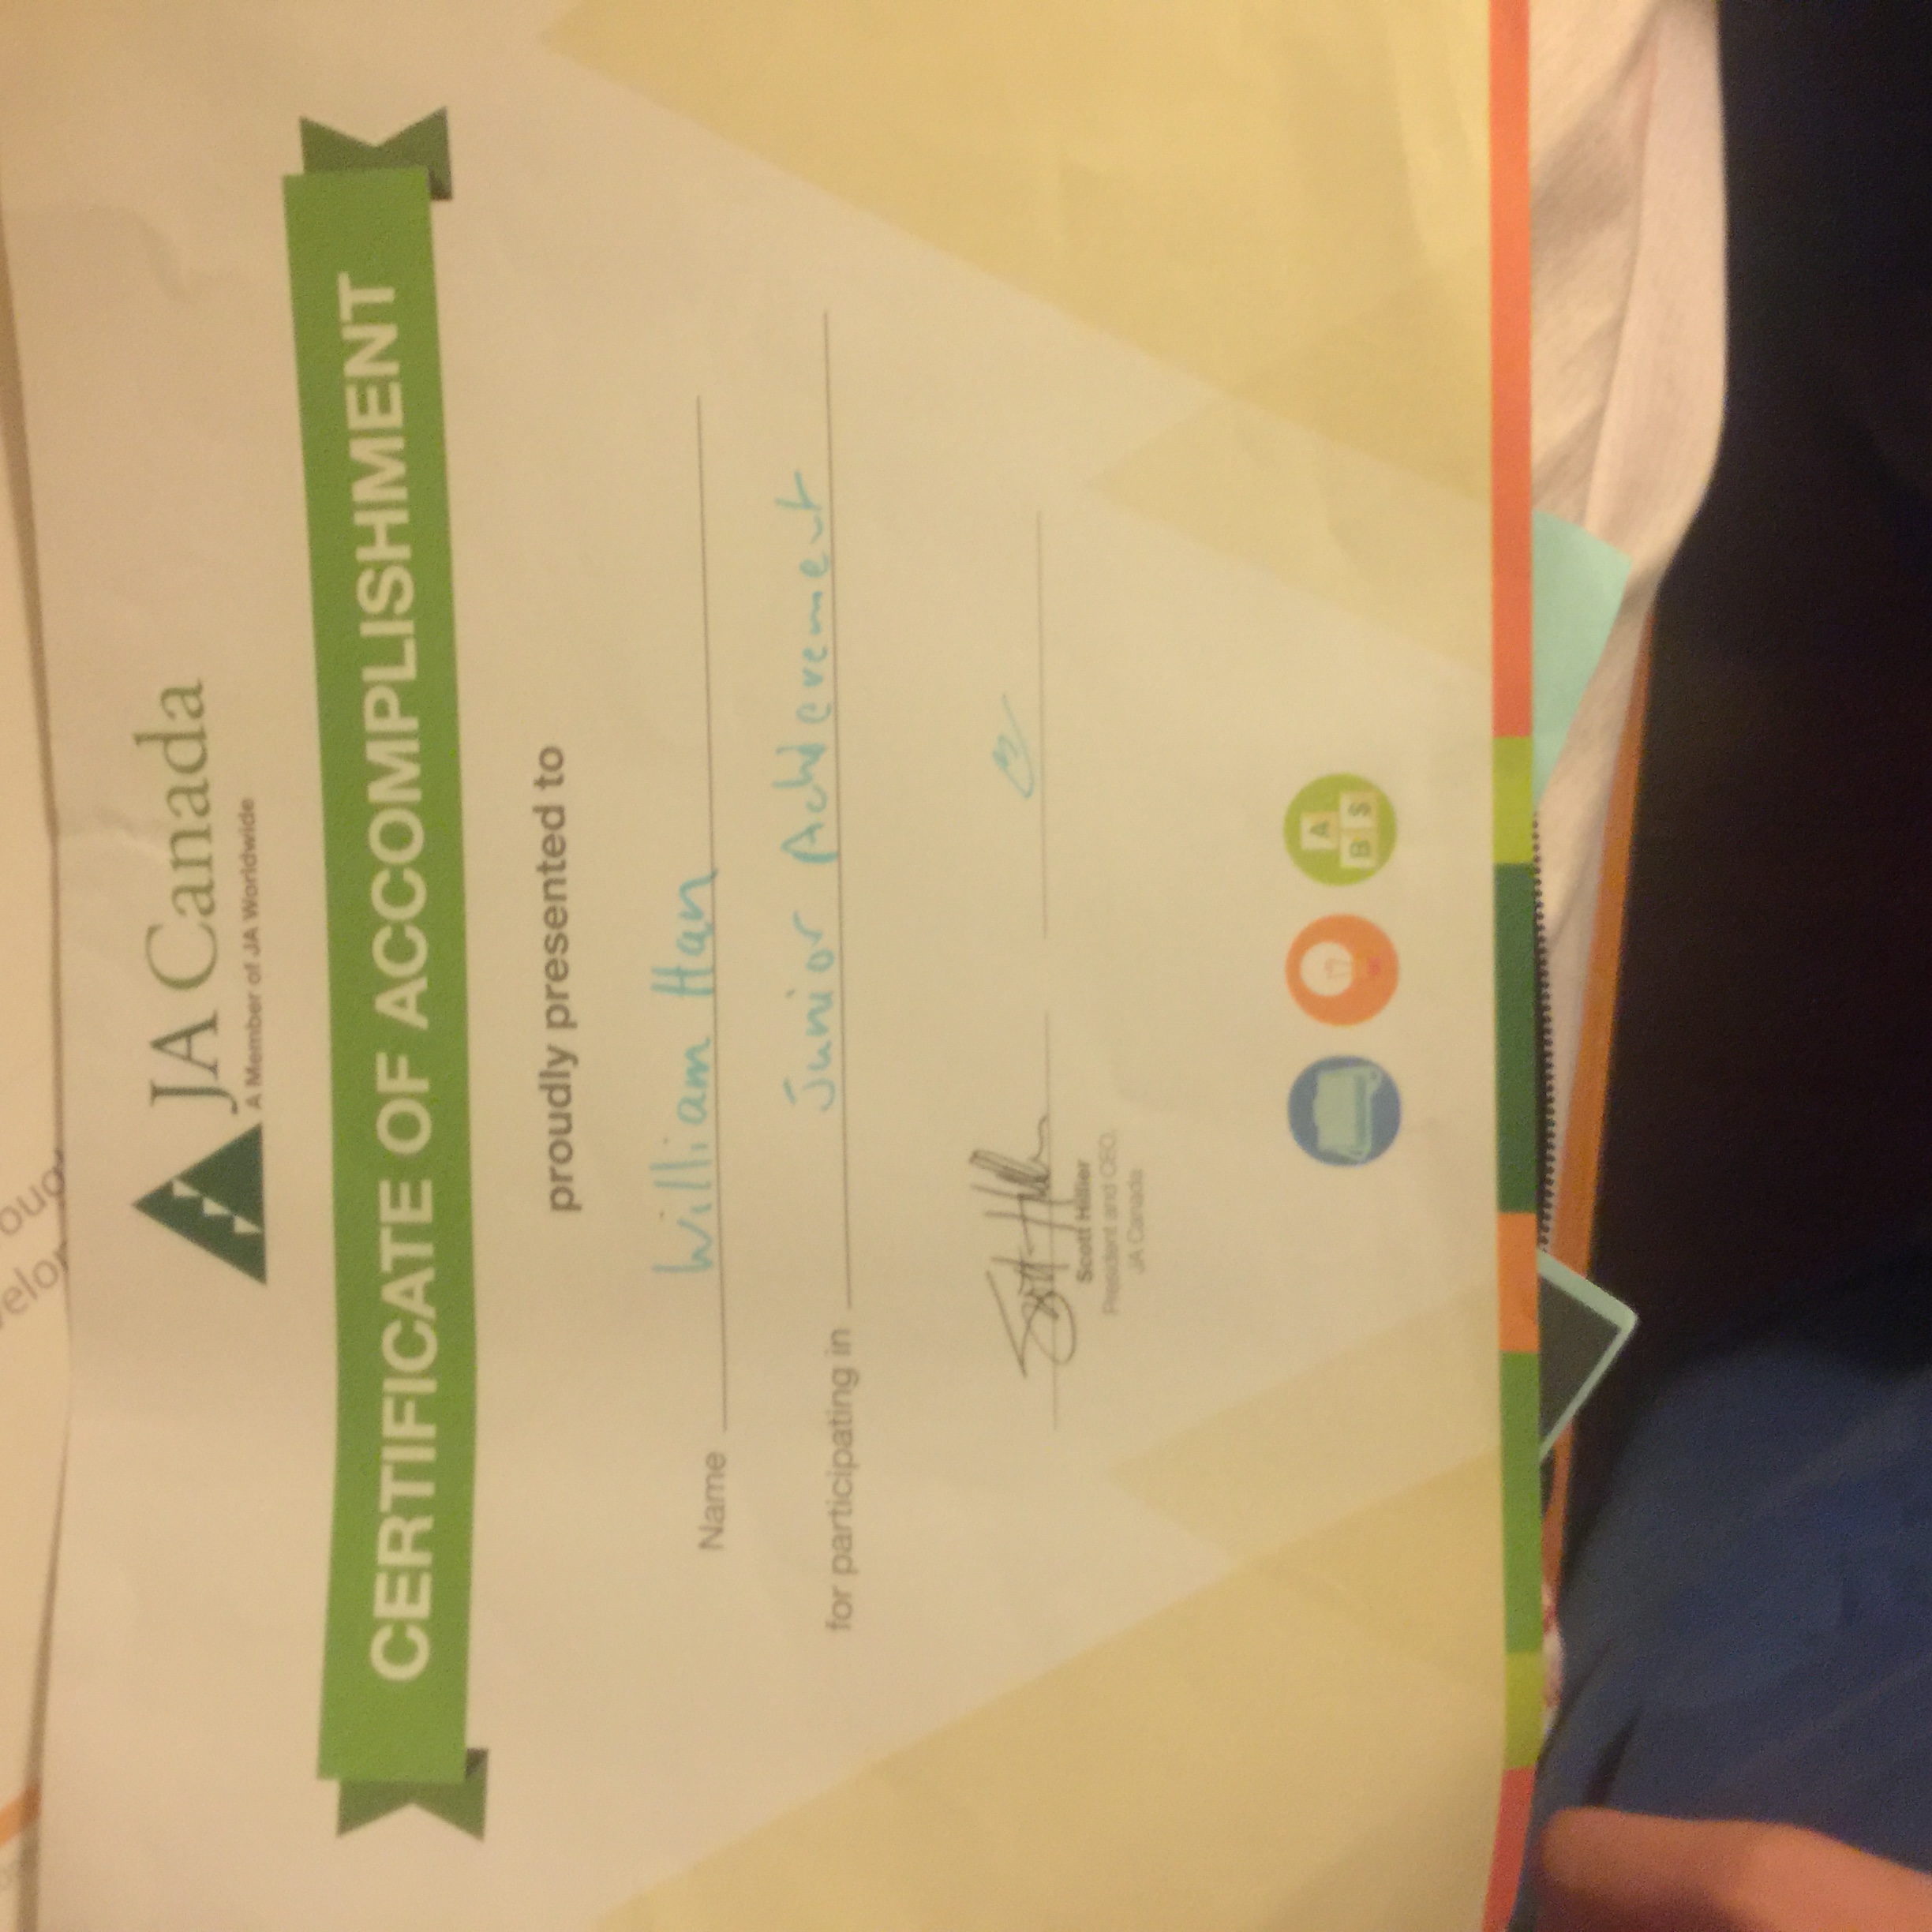 JA Canada
A Member of JA Worldwide
CERTIFICATE OF ACCOMPLISHMENT
proudly presented to
Name William Han
for participating in Junior Achievement
Scott Hillier
Scott Hillier
President and CEO,
JA Canada
A
B $